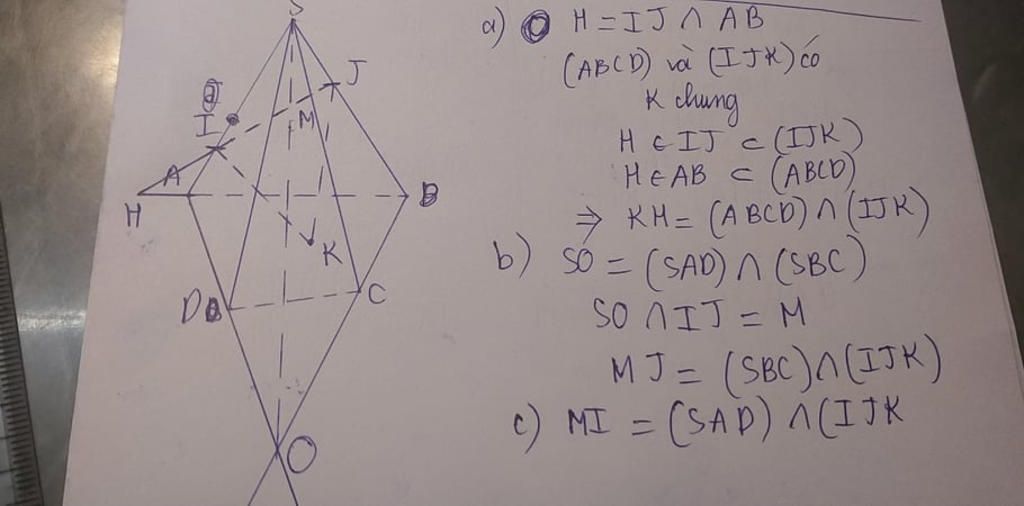 S
J
I
M
A
H
B
K
D
C
O
a) H = IJ ∩ AB
(ABCD) và (IJK) có
K chung
H ∈ IJ ⊂ (IJK)
H ∈ AB ⊂ (ABCD)
⇒ KH = (ABCD) ∩ (IJK)
b) SO = (SAD) ∩ (SBC)
SO ∩ IJ = M
MJ = (SBC) ∩ (IJK)
c) MI = (SAD) ∩ (IJK